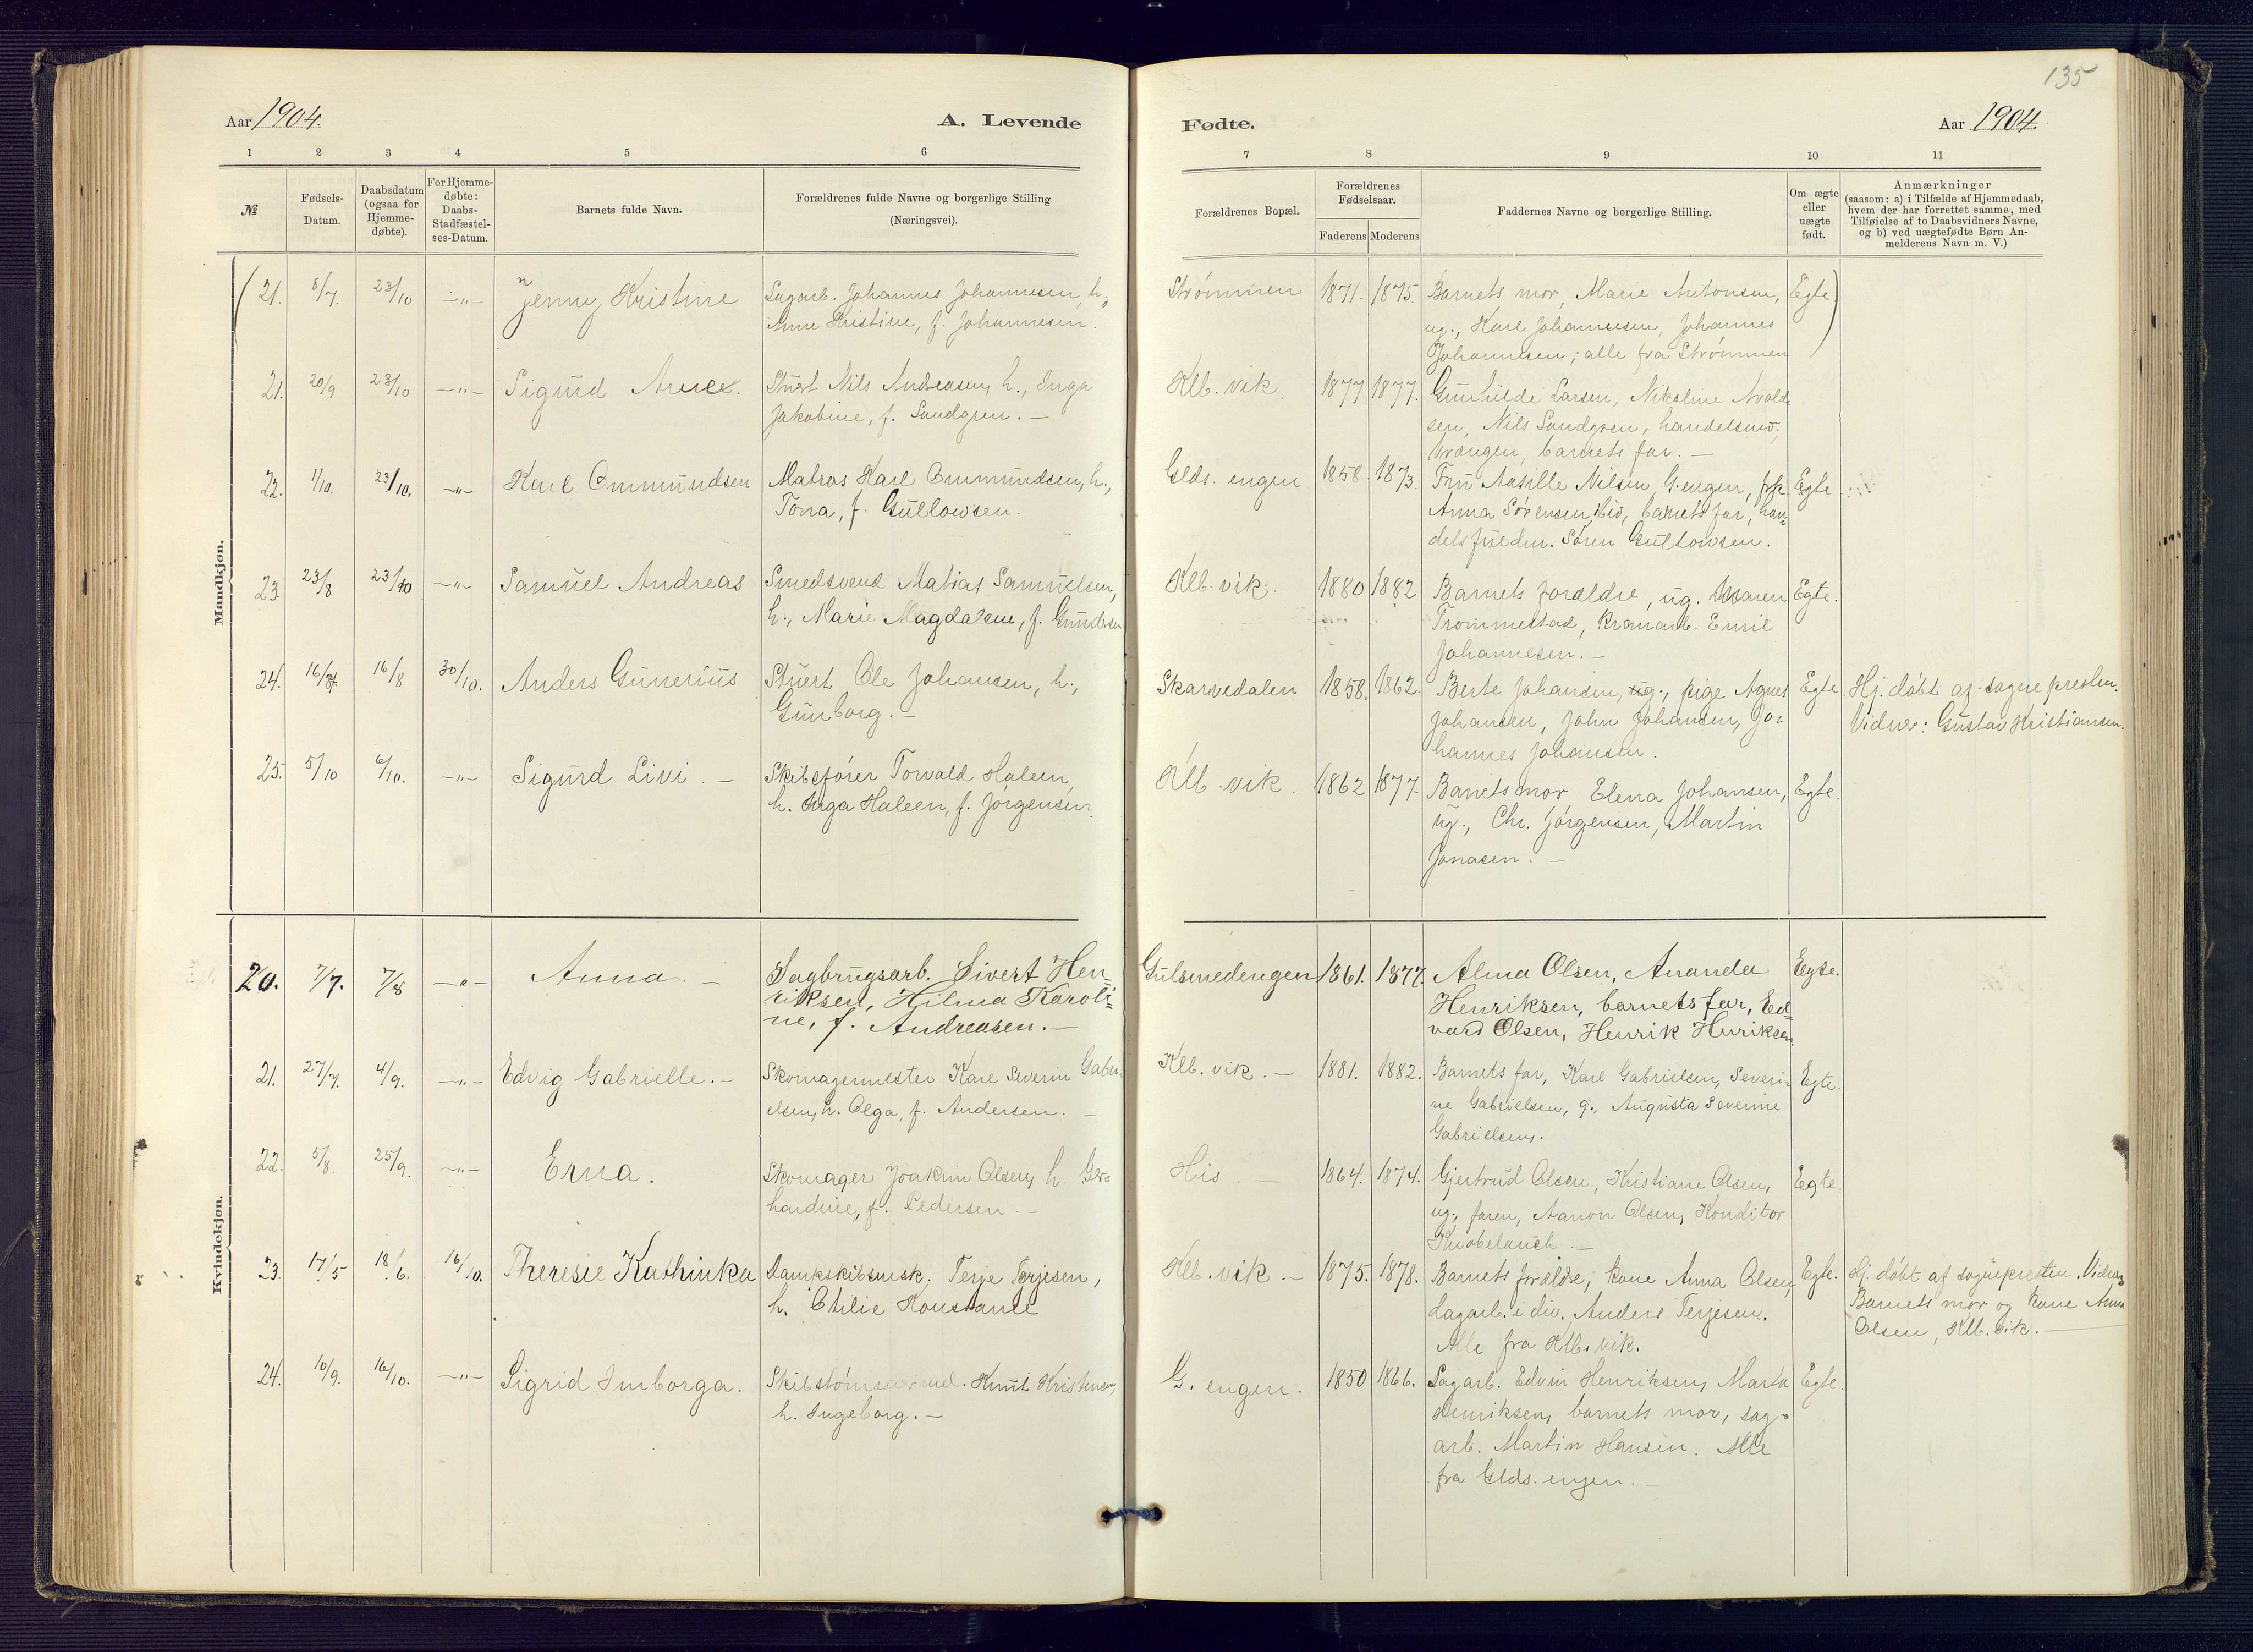 135
Aar 1904.
A. Levende
Fødte.
Aar 1904
1 2 3 4 5 6
7 8 9 10 11
№
Fødsels-
Datum.
Daabsdatum
(ogsaa for
Hjemme-
døbte).
For Hjemme-
døbte:
Daabs-
Stadfæstel-
ses-Datum.
Barnets fulde Navn.
Forældrenes fulde Navne og borgerlige Stilling
(Næringsvei).
Forældrenes Bopæl.
Forældrenes
Fødselsaar.
Faderens Moderens
Faddernes Navne og borgerlige Stilling.
Om ægte
eller
uægte
født.
Anmærkninger
(saasom: a) i Tilfælde af Hjemmedaab,
hvem der har forrettet samme, med
Tilføielse af to Daabsvidners Navne,
og b) ved uægtefødte Børn An-
melderens Navn m. V.)
Mandkjøn.
(21. 8/7. 23/10 -„- Jenny Kristine Sagarb. Johannes Johannesen, h.,
Anne Kristine, f. Johannesen.
Strømmen 1871. 1875. Barnets mor, Marie Antonsen, Egte)
ug., Karl Johannesen, Johannes
Johannesen; alle fra Strømmen
21. 20/9 23/10 -„- Sigurd Stuert Nils Andreasen, h., Inga
Jakobine, f. Sandgren. -
Klb. vik. 1877 1877. Gunhilde Larsen, Nikoline Avold-
sen, Nils Sandgren, handelsmd.,
barnets far. -
22. 1/10. 23/10. -„- Karl Ommundsen Matros Karl Ommundsen, h.,
Tona, f. Gullowsen.
Glds. engen 1858 1873. Fru Aasille Nilsen, G. engen, frk. Egte
Anna Sørensen, ibid, barnets far, han-
delsfuldm. Søren Gullowsen.
23. 23/8 23/10 -„- Samuel Andreas Smedsvend Matias Samuelsen,
h., Marie Magdalene, f. Gundersen
Klb. vik. 1880 1882 Barnets forældre, ug. Maren Egte.
Trommestad, kranarb. Emil
Johannesen. -
24. 16/8. 16/8 30/10. Anders Gunerius Stuert Ole Johansen, h.,
Gunborg. -
Skarvedalen 1858. 1862. Berte Johansen, ug., pige Agnes Egte. Hj. døbt af sognepresten.
Johansen, John Johansen, Jo- Vidner: Gustav Kristiansen.
hannes Johansen.
25. 5/10 6/10. -„- Sigurd Livi. - Skibsfører Torvald Haleen,
h. Inga Haleen, f. Jørgensen.
Klb. vik. 1862 1877 Barnets mor, Elena Johansen, Egte.
ug., Chr. Jørgensen, Martin
Jonasen. -
Kvindekjøn.
20. 7/7. 7/8 -„- Anna. - Sagbrugsarb. Sivert Hen-
riksen, Hilma Karoli-
ne, f. Andreasen. -
Gulsmedengen 1861. 1877. Alma Olsen, Ananda Egte.
Henriksen, barnets far, Ed-
vard Olsen, Henrik Henriksen.
21. 27/7. 4/9. -„- Edvig Gabrielle. - Skomagermester Karl Severin Gabri-
elsen, h. Olga, f. Andersen. -
Klb. vik. - 1881. 1882. Barnets far, Karl Gabrielsen, Severi- Egte.
ne Gabrielsen, g., Augusta Severine
Gabrielsen.
22. 5/8. 25/9. -„- Erna. Skomager Joakim Olsen, h. Ger-
hardine, f. Pedersen. -
His. - 1864. 1874. Gjertrud Olsen, Kristiane Olsen, Egte.
ug., faren, Aanon Olsen, Konditor
Knobelauch. -
23. 17/5 18/6. 16/10. Theresie Kathinka Dampskibsmsk. Terje Terjesen,
h. Otilie Konstanse
Klb. vik. - 1875. 1878. Barnets forældre, kone Anna Olsen, Egte. Hj. døbt af sognepresten. Vidner
Sagarb. i div. Anders Terjesen. Barnets mor og kone Anna
Alle fra Klb. vik. Olsen, Klb. vik. -
24. 10/9. 16/10. -„- Sigrid Imborga. Skibstømmermd. Knut Kristensen,
h. Ingeborg. -
G. engen. 1850 1866. Sagarb. Edvin Henriksen, Marta Egte.
Henriksen, barnets mor, sag-
arb. Martin Hansen. Alle
fra Glds. engen. -